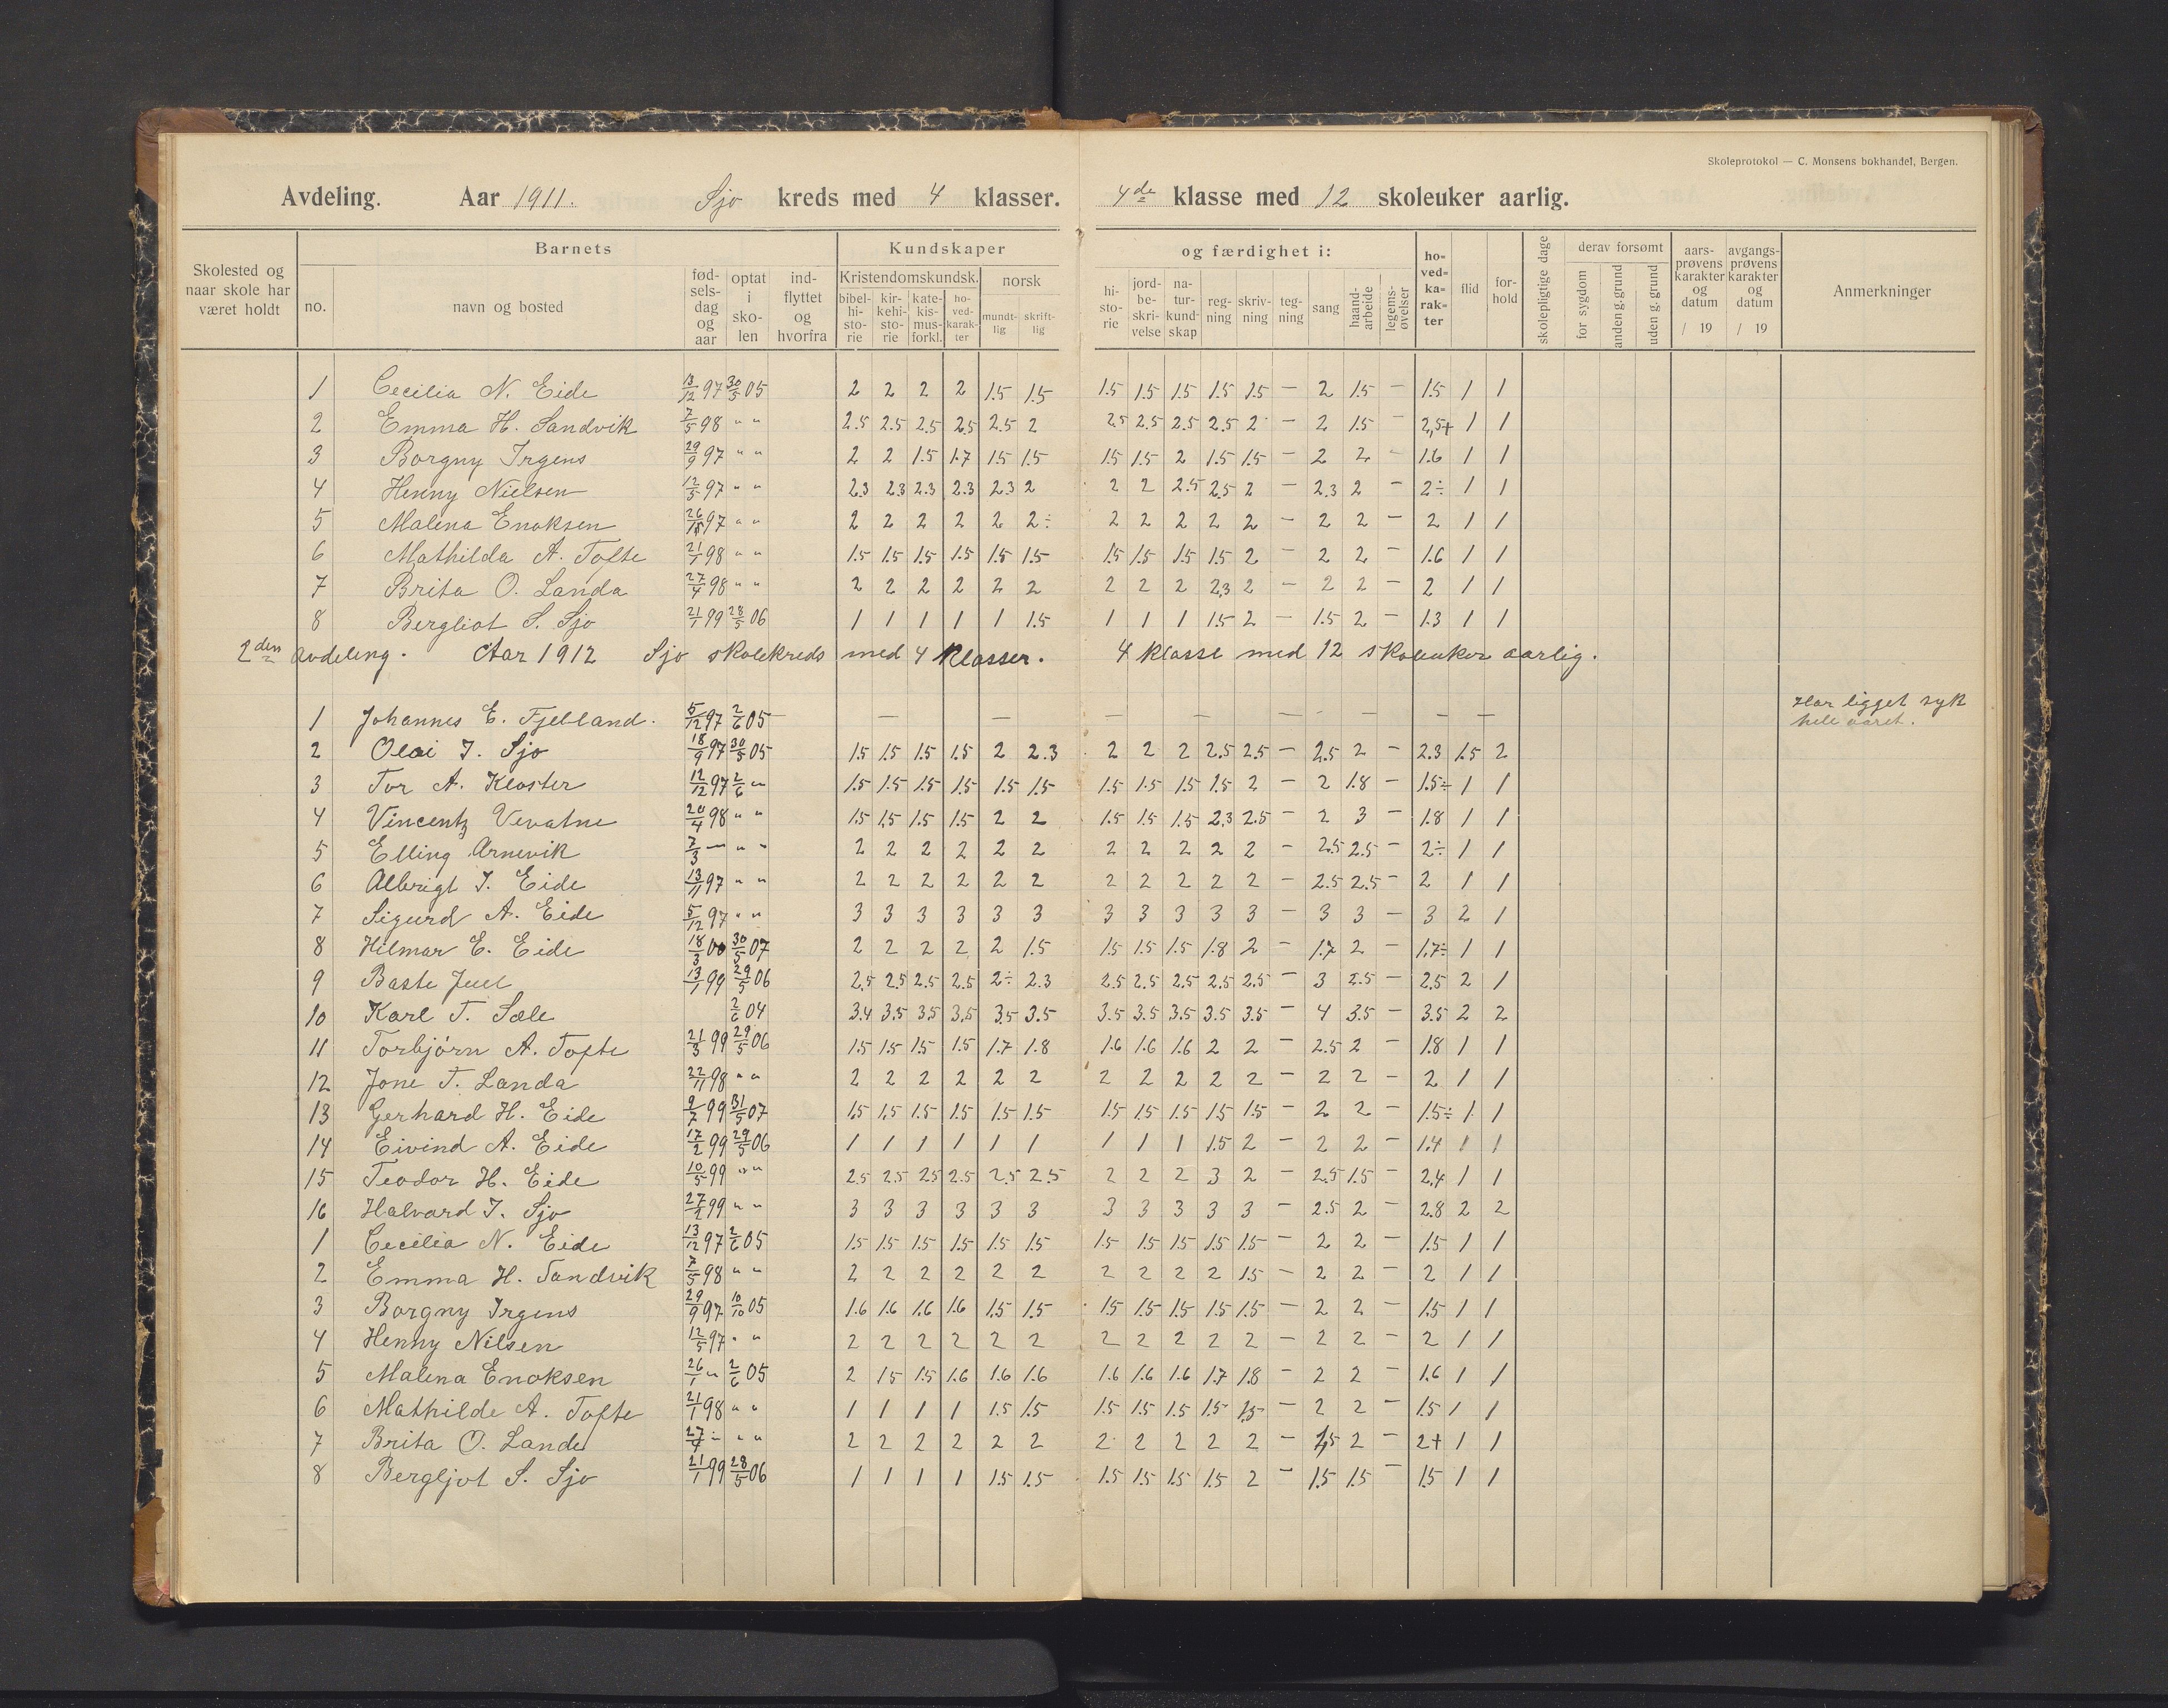 Skoleprotokol — C. Monsens bokhandel, Bergen.
Avdeling. Aar 1911. Sjo kreds med 4 klasser. 4de klasse med 12 skoleuker aarlig.
Skolested og naar skole har været holdt
Barnets
no. navn og bosted fødselsdag og aar optat i skolen indflyttet og hvorfra
Kundskaper og færdighet i:
Kristendomskundsk. norsk
bibelhistorie kirkehistorie katekismus forkl. hovedkarakter mundtlig skriftlig
historie jordbeskrivelse naturkundskap regning skrivning tegning sang haandarbeide legemsøvelser
hovedkarakter flid forhold skolepligtige dage
derav forsømt
for sygdom anden g. grund uden g. grund
aarsprøvens karakter og datum / 19 avgangsprøvens karakter og datum / 19 Anmerkninger
1 Cecilia N. Eide 13/12 97 30/5 05 2 2 2 2 1.5 1.5 1.5 1.5 1.5 1.5 1.5 — 2 1.5 — 1.5 1 1
2 Emma H. Sandvik 7/5 98 " " 2.5 2.5 2.5 2.5 2.5 2 2.5 2.5 2.5 2.5 2 — 2 1.5 2,5+ 1 1
3 Borgny Irgens 29/9 97 " " 2 2 1.5 1.7 1.5 1.5 1.5 1.5 2 1.5 1.5 — 2 2 — 1.6 1 1
4 Henny Nielsen 12/5 97 " " 2.3 2.3 2.3 2.3 2.3 2 2 2 2.5 2.5 2 — 2.3 2 — 2÷ 1 1
5 Malena Enoksen 97 " " 2 2 2 2 2 2÷ 2 2 2 2 2 — 2 2 — 2 1 1
6 Mathilda A. Tofte 21/1 98 " " 1.5 1.5 1.5 1.5 1.5 1.5 1.5 1.5 1.5 1.5 2 — 2 2 — 1.6 1 1
7 Brita O. Landa 27/4 98 " " 2 2 2 2 2 2 2 2 2 2,3 2 — 2 2 — 2 1 1
8 Bergliot S. Sjo 21/1 99 28/5 06 1 1 1 1 1 1.5 1 1 1 1.5 2 — 1.5 2 — 1.3 1 1
2den avdeling. Aar 1912 Sjo skolekreds med 4 klasser. 4 klasse med 12 skoleuker aarlig.
1 Johannes E. Fjelland. 5/12 97 2/6 05 — — — — — — — — — — Har ligget syk
hele aaret.
2 Olai J. Sjo 18/9 97 30/5 05 1.5 1.5 1.5 1.5 2 2.3 2 2 2 2.5 2.5 — 2.5 2 — 2.3 1.5 2
3 Tor A. Kloster 12/12 97 2/6 " 1.5 1.5 1.5 1.5 1.5 1.5 1.5 1.5 1.5 1.5 2 — 2 1.8 — 1.5÷ 1 1
4 Vincentz Vevatne 20/4 98 " " 1.5 1.5 1.5 1.5 2 2 1.5 1.5 1.5 2,3 2.5 — 2 3 — 1.8 1 1
5 Elling Arnevik 7/3 — " " 2 2 2 2 2 2 2 2 2 2 2 — 2.5 2.5 — 2÷ 1 1
6 Albrigt J. Eide 13/11 97 " " 2 2 2 2 2 2 2 2 2 2 2 — 2.5 2.5 — 2 1 1
7 Sigurd A. Eide 5/12 97 " " 3 3 3 3 3 3 3 3 3 3 3 — 3 3 — 3 2 1
8 Hilmar E. Eide 18/3 00 30/5 07 2 2 2 2 2 1.5 1.5 1.5 1.5 1.8 2 — 1.7 2 — 1.7÷ 1 1
9 Baste Juul 13/1 99 29/5 06 2,5 2.5 2.5 2.5 2÷ 2.3 2.5 2.5 2.5 2.5 2.5 — 3 2.5 — 2.5 2 1
10 Karl T. Sæle 2/6 04 3.4 3.5 3.5 3.5 3.5 3.5 3.5 3.5 3.5 3.5 3.5 — 4 3.5 — 3.5 2 2
11 Torbjörn A. Tofte 21/3 99 29/5 06 1.5 1.5 1.5 1.5 1.7 1.8 1.6 1.6 1.6 2 2 — 2.5 2 — 1.8 1 1
12 Jone T. Landa 22/11 98 " " 2 2 2 2 2 2 2 2 2 2 2 — 2 2 — 2 1 1
13 Gerhard H. Eide 9/7 99 31/5 07 1.5 1.5 1.5 1.5 1.5 1.5 1.5 1.5 1.5 1.5 1.5 — 2 2 — 1.5÷ 1 1
14 Eivind A. Eide 17/2 99 29/5 06 1 1 1 1 1 1 1 1 1 1.5 2 — 2 2 — 1.4 1 1
15 Teodor H. Eide 10/5 99 " " 2.5 2.5 2.5 2.5 2.5 2.5 2 2 2 3 2 — 2.5 1.5 — 2.4 1 1
16 Halvard J. Sjo 27/2 99 " " 3 3 3 3 3 3 3 3 3 3 3 — 2.5 2 — 2.8 2 2
1 Cecilia N. Eide 13/12 97 2/6 05 1.5 1.5 1.5 1.5 1.5 1.5 1.5 1.5 1.5 1.5 1.5 — 2 2 — 1.5 1 1
2 Emma H. Sandvik 7/5 98 " " 2 2 2 2 2 2 2 2 2 2 1.5 — 2 2 — 2 1 1
3 Borgny Irgens 29/9 97 10/10 05 1.6 1.6 1.6 1.6 1.5 1.5 1.5 1.5 1.5 1.5 1.5 — 2 2 — 1.5 1 1
4 Henny Nilsen 12/5 97 " " 2 2 2 2 2 2 2 2 2 2 2 — 2 2 — 2 1 1
5 Malena Enoksen 26/1 " 2/6 05 2 1.5 1.5 1.6 1.6 1.6 1.6 1.6 1.6 1.7 1.8 — 2 2 — 1.6 1 1
6 Mathilde A. Tofte 21/1 98 " " 1 1 1 1 1.5 1.5 1.5 1.5 1.5 1.5 1.5 — 2 2 — 1.5 1 1
7 Brita O. Landa 27/4 " " " 2 2 2 2 2 2 2 2 2 2 2 — 2 — 2+ 1 1
8 Bergljot S. Sjo 21/1 99 28/5 06 1 1 1 1 1.5 1.5 1.5 1.5 1.5 1.5 2 — 1.5 1.5 — 1.5 1 1